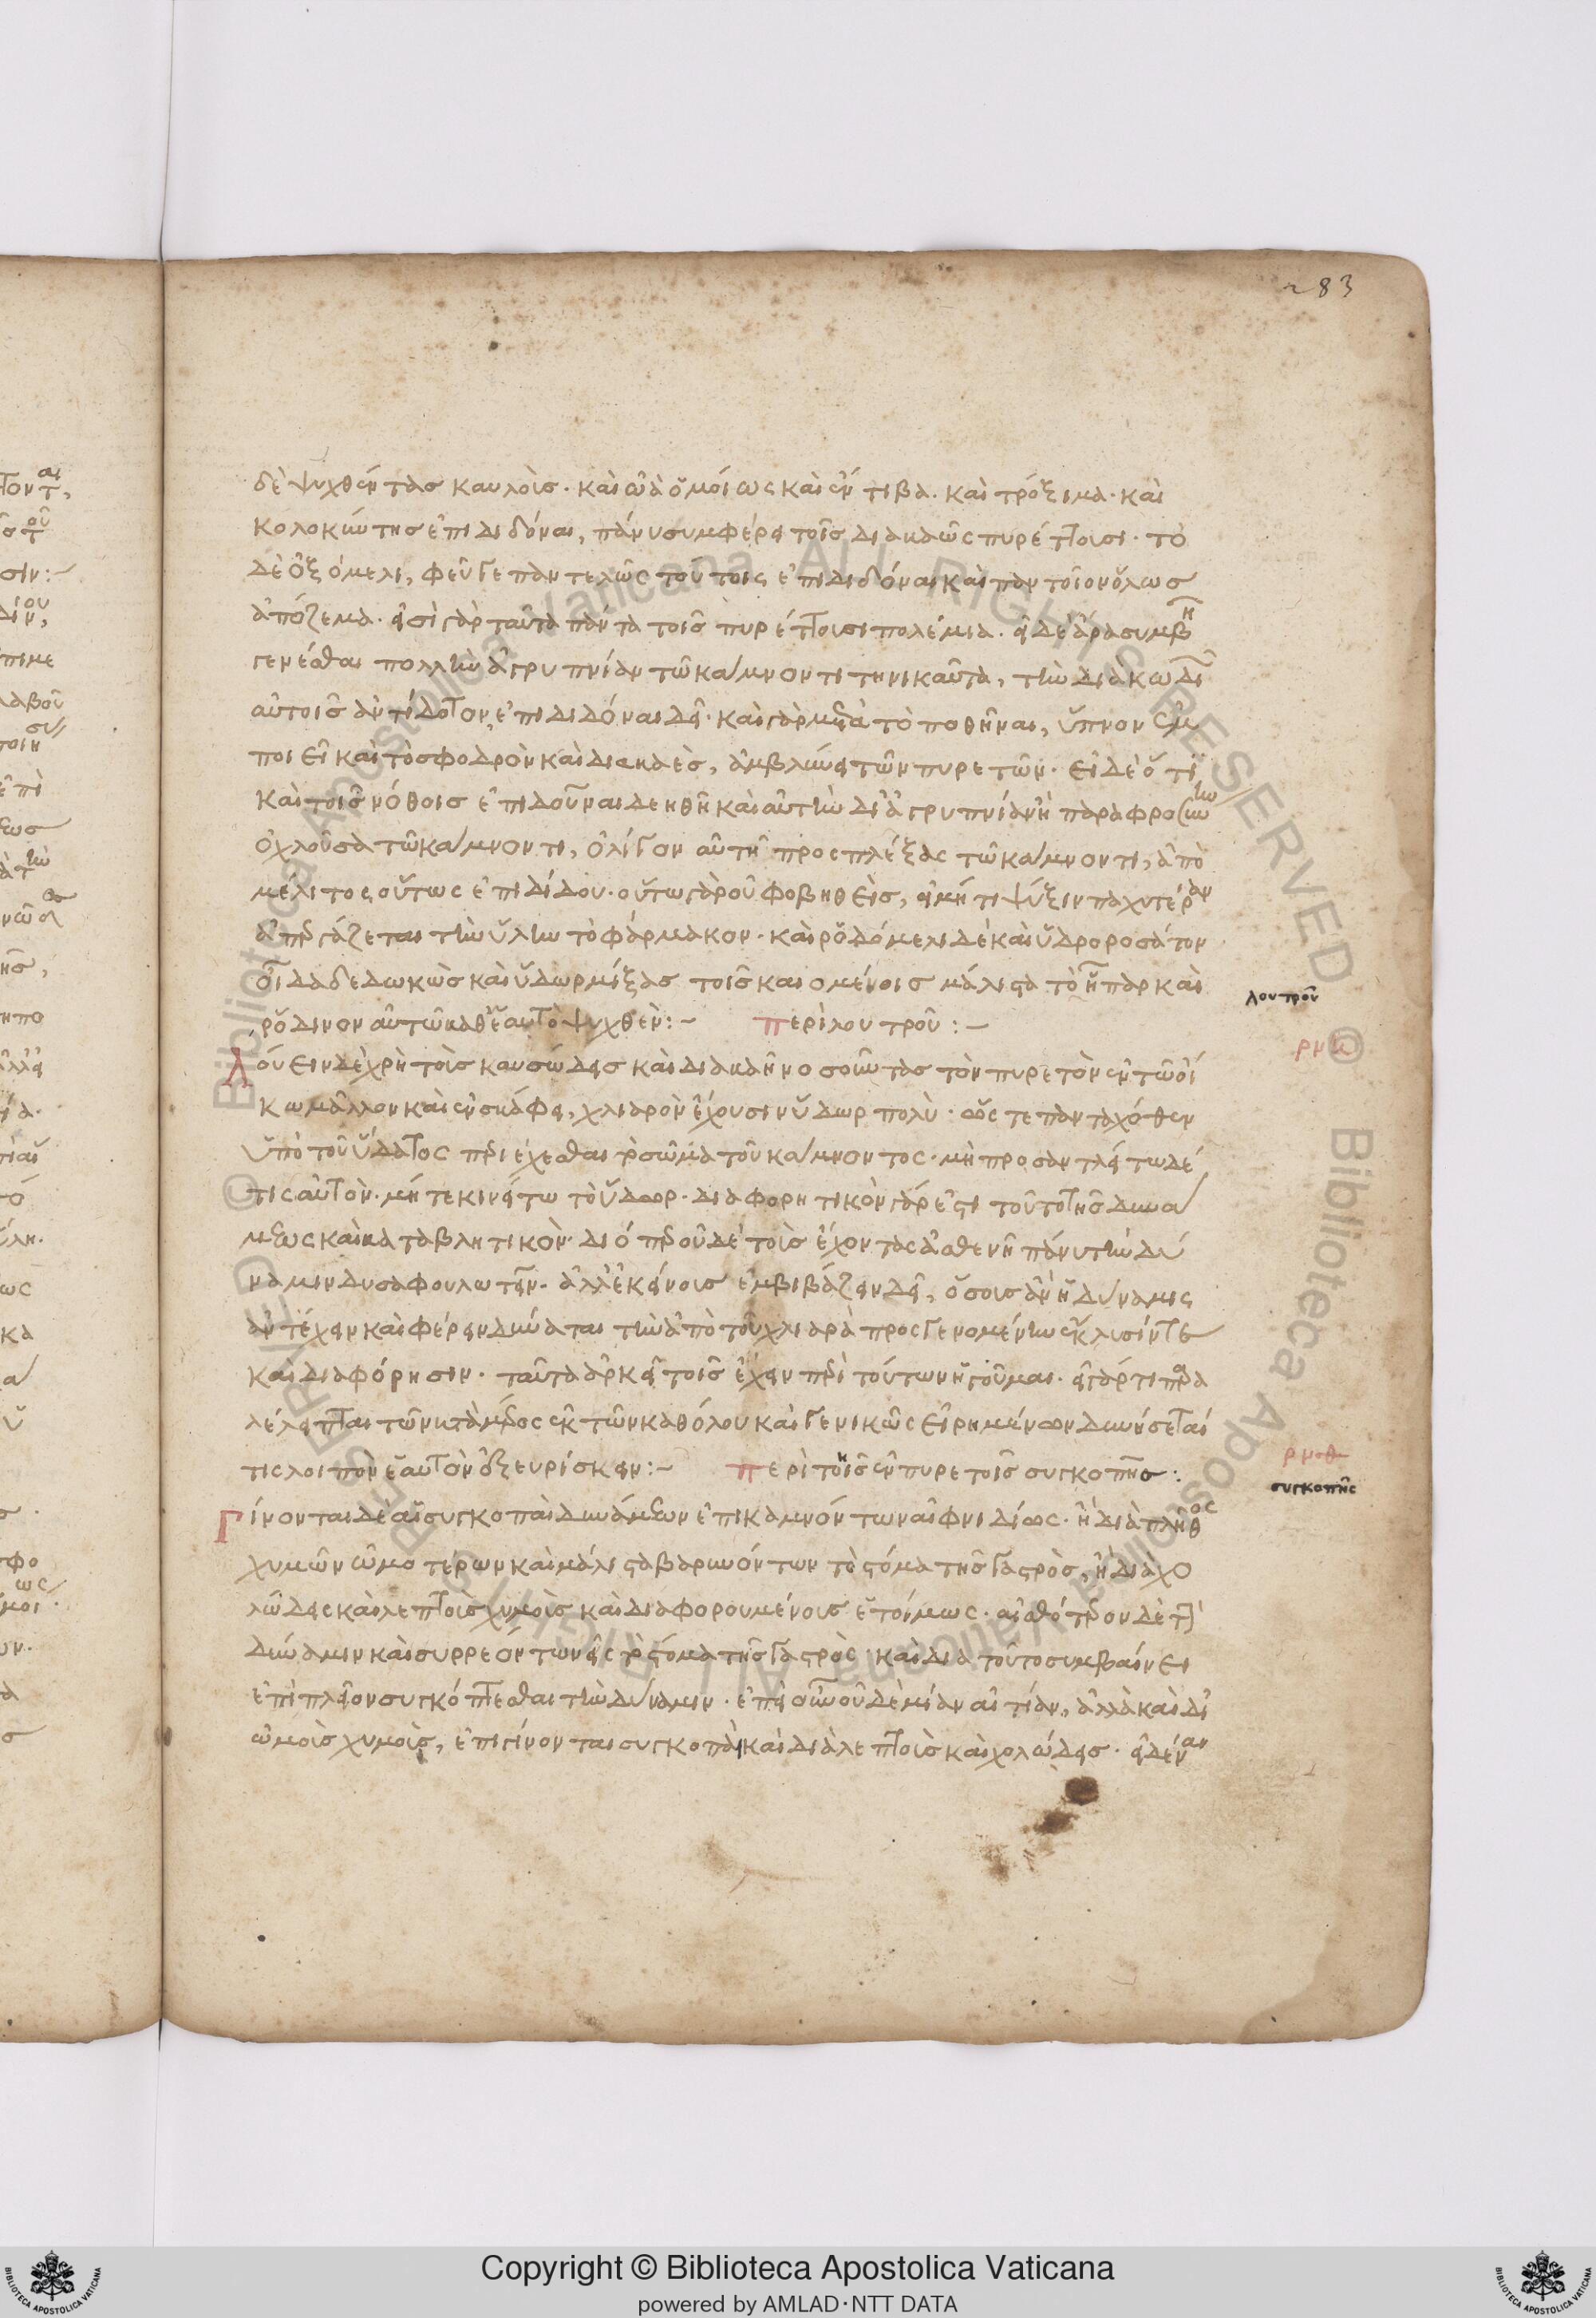 283
δὲ ψυχθέντας καυλοὶς· καὶ ὠὰ ὅμοίως καὶ ἔντιβα· καὶ τρόξιμα· καὶ
κολοκύντης ἐπιδιδόναι, πάνυ συμφέρει τοῖς διακαῶς πυρέττουσι· τὸ
δὲ ὀξόμελι, φεῦγε παντελῶς τούτοις ἐπιδιδόναι καὶ παντοῖον ὅλως
ἀπόζεμα· εἰσὶ γὰρ ταῦτα πάντα τοῖς πυρέττουσι πολέμια· εἰ δὲ ἄρα συμβῆ
γενέσθαι πολλὴν ἀγρυπνίαν τῶ κάμνοντι τηνικαῦτα, τὴν διὰ κωδι
αὐτοῖς ἀντίδοτον, ἐπιδιδόναι δεῖ· καὶ γὰρ μετὰ τὸ ποθῆναι, ὕπνον ἐμ
ποιεῖ καὶ τὸ σφοδρὸν καὶ διακαὲς, ἀμβλύνει τῶν πυρετῶν· εἰ δέ ὅτι
καὶ τοῖς νόθοις ἐπιδοῦναι δεηθῆ καὶ αὐτὴν δι' ἀγρυπνίαν ἢ παραφροσύνην
ὀχλοῦσα τῶ κάμνοντι, ὀλίγον αὐτῆ προσπλέξας τῶ κάμνοντι, ἀπὸ
μέλιτος οὕτως ἐπιδίδου· οὕτω γὰρ οὐ φοβηθεὶς, εἰ μή τι ψύξιν παχυτέραν
ἀπεργάζεται τὴν ὕλην τὸ φάρμακον· καὶ ῥοδόμελι δὲ καὶ ὕδροροσάτον
οἶδα δεδωκὼς καὶ ὕδωρ μίξας τοῖς καιομένοις μάλιστα τὸ ἧπαρ καὶ
ῥόδινον αὐτῶ καθ' ἑαυτὸ ψυχθέν:~ περὶ λουτροῦ:~
λουτροῦ
ρνη
Λούειν δὲ χρὴ τοὶς καυσώδεις καὶ διακαῆ νοσοῦντας τὸν πυρετὸν ἐν τῶ οἴ
κω μᾶλλον καὶ ἐν σκάφει, χλιαρὸν ἔχουσιν ὕδωρ πολὺ· ὥστε πανταχόθεν
ὑπὸ τοῦ ὕδατος περιέχεσθαι τὸ σῶμα τοῦ κάμνοντος· μὴ προσαντλείτω δέ
τις αὐτὸν· μήτε κινείτω τὸ ὕδωρ· διαφορητικὸν γάρ ἐστι τοῦτο τῆς δυνά
μεως καὶ καταβλητικὸν· διόπερ οὐδὲ τοὶς ἔχοντας ἀσθενῆ πάνυ τὴν δύ
ναμιν δυσαφουλωτέην· ἀλλ' ἐκείνοις ἐμβιβάζειν δεῖ, ὅσοις ἂν ἡ δύναμις
ἀντέχειν καὶ φέρειν δύναται τὴν ἀπὸ τοῦ χλιαρὰ προσγενομένην ἔκλυσίν τε
καὶ διαφόρησιν· ταῦτα ἀρκεῖ τοῖς ἔχειν περὶ τούτων ἡγοῦμαι· εἰ γάρ τι παρα
λέλειπται τῶν κατὰ μέρος ἐκ τῶν καθόλου καὶ γενικῶς εἰρημένων δυνήσεταί
τις λοιπὸν ἑαυτὸν ἐξευρίσκειν:~ περὶ τοῖς ἐν πυρετοῖς συγκοπῆς:
ρνθ
συγκοπῆς
Γίνονται δὲ αἱ συγκοπαὶ δυνάμεων ἐπὶ καμνόντων αἰφνιδίως· ἢ διὰ πλῆθος
χυμῶν ὠμοτέρων καὶ μάλιστα βαρυνόντων τὸ στόμα τῆς γαστρὸς, ἢ διὰ χο
λώδεις καὶ λεπτοὶς χυμοὶς καὶ διαφορουμένους ἑτοίμως· αἰσθότερον δὲ τὴν
δύναμιν καὶ συρρεόντων εἰς τὸ στόμα τῆς γαστρὸς· καὶ διὰ τοῦτο συμβαίνει
ἐπὶ πλεῖον συγκόπτεσθαι τὴν δύναμιν· ἐπεὶ οὖν οὐ δὲ μίαν αἰτίαν, ἀλλὰ καὶ δι'
ὠμοὶς χυμοὶς, ἐπιγίνονται συγκοπαὶ καὶ διὰ λεπτοὶς καὶ χολώδεις· εἰ δὲ ἐναν
Copyright © Biblioteca Apostolica Vaticana
powered by AMLAD·NTT DATA